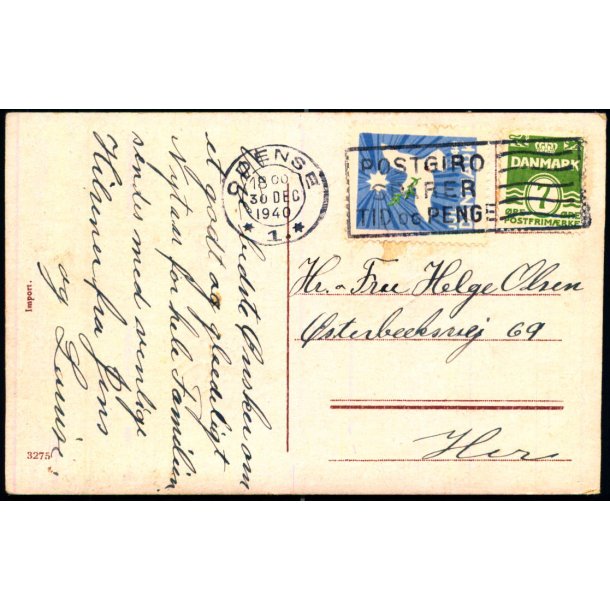 De bedste Ønsker om
et godt og glædeligt
Nytaar for hele Familien
sendes med venlige
Hilsner fra Jens
og Louise.
ODENSE
18 00
30 DEC
1940
* 1. *
POSTGIRO
SPARER
TID OG PENGE
DANMARK
7
ØRE ØRE
POSTFRIMÆRKE
Hr. & Fru Helge Olsen
Østerbæksvej 69
Her
Import.
3275